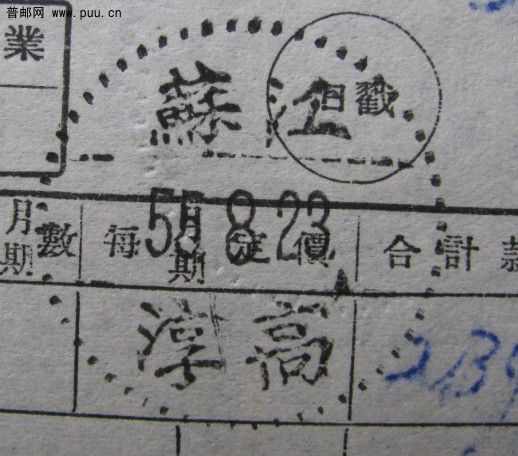 普邮网 www.puu.cn
業
戳日
江蘇
55.8.23
月期數
每月期定價
合計款
高淳